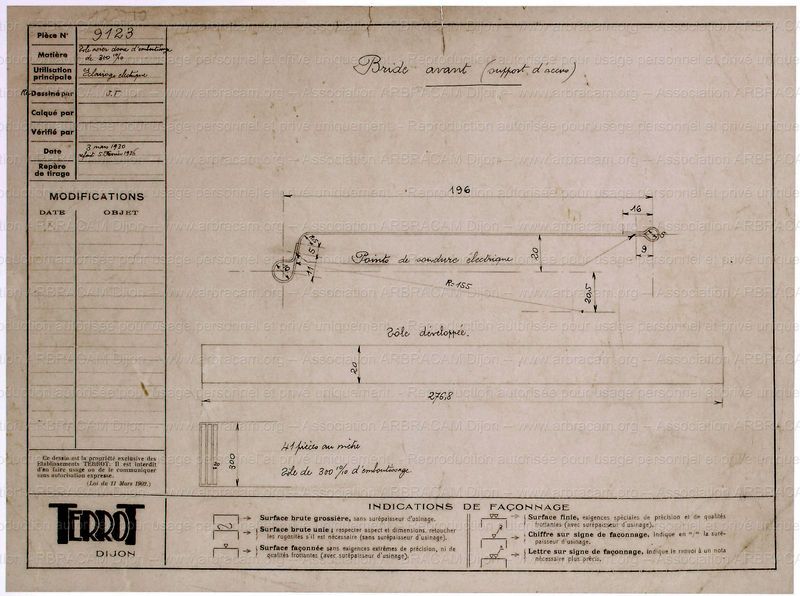 Pièce N° 9123
Matière Tôle acier doux d'emboutissage
de 300 m/m
Utilisation
principale Eclairage electrique
Re-Dessiné par J.T
Calqué par
Vérifié par
Date 3 mars 1930
refait 5 Février 1936
Repère
de tirage
MODIFICATIONS
DATE OBJET
Bride avant (support d'accus)
196
16
20
9
11
Points de soudure électrique
R=155
20,5
Tôle développée.
20
276,8
300
41 pièces au mètre
Tôle de 300 m/m d'emboutissage
Ce dessin est la propriété exclusive des
Etablissements TERROT. Il est interdit
d'en faire usage ou de le communiquer
sans autorisation expresse.
(Loi du 11 Mars 1902.)
TERROT
DIJON
INDICATIONS DE FAÇONNAGE
Surface brute grossière, sans surépaisseur d'usinage.
Surface brute unie : respecter aspect et dimensions, retoucher
les rugosités s'il est nécessaire (sans surépaisseur d'usinage).
Surface façonnée sans exigences extrêmes de précision, ni de
qualités frottantes (avec surépaisseur d'usinage).
Surface finie, exigences spéciales de précision et de qualités
frottantes (avec surépaisseur d'usinage).
Chiffre sur signe de façonnage. Indique en "/" la suré-
paisseur d'usinage.
Lettre sur signe de façonnage. Indique le renvoi à un nota
nécessaire plus précis.
Association ARBRACAM Dijon – www.arbracam.org – Reproduction autorisée pour usage personnel et privé uniquement